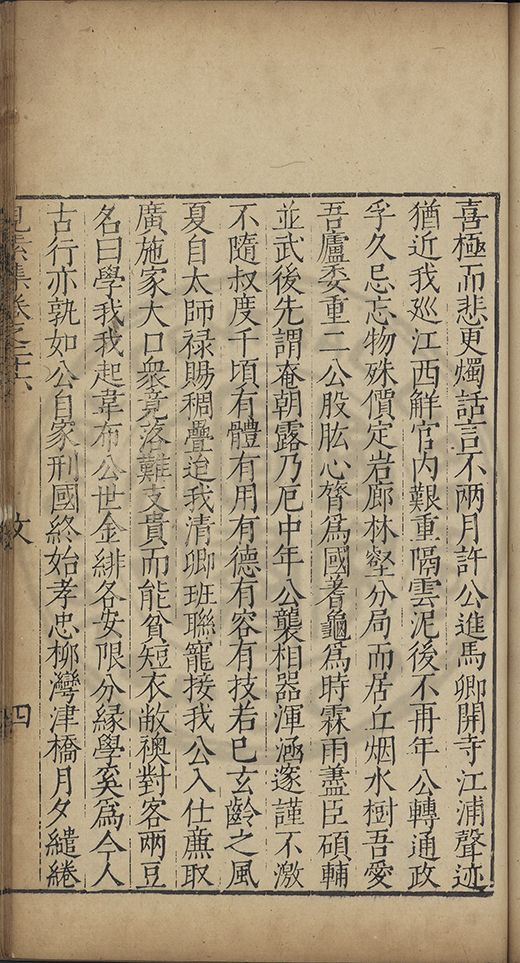 喜極而悲更燭話言不兩月許公進馬卿開寺江浦聲迹
猶近我廵江西觧官内艱重隔雲泥後不再年公轉通政
孚久忌忘物殊價定岩廊林壑分局而居丘烟水樹吾愛
吾廬委重二公股肱心膂爲國蓍龜爲時霖雨盡臣碩輔
並武後先謂奄朝露乃厄中年公襲相器渾涵邃謹不激
不隨叔度千頃有體有用有德有容有技若已玄齡之風
夏自太師禄賜稠疊迨我清卿班聯寵接我公入仕廉取
廣施家大口衆竟落難支貴而能貧短衣敝襖對客兩豆
名曰學我我起韋布公世金緋各安限分緣學奚爲今人
古行亦孰如公自家刑國終始孝忠柳灣津橋月夕繾綣
見素集卷之二十六
文
四